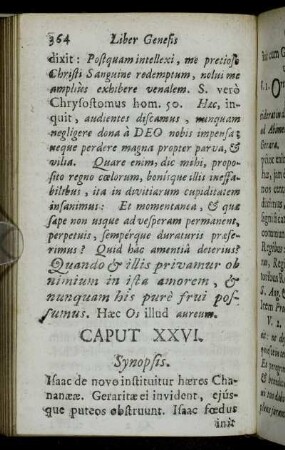 364 Liber Genesis
dixit: Postquam intellexi, me pretioso
Christi Sanguine redemptum, nolui me
amplius exhibere venalem. S. verò
Chrysostomus hom. 50. Hæc, in-
quit, audientes discamus, nunquam
negligere dona à DEO nobis impensa;
neque perdere magna propter parva, &
vilia. Quare enim, dic mihi, propo-
sito regno cœlorum, bonisque illis ineffa-
bilibus, ita in divitiarum cupiditatem
insanimus: Et momentanea, & quæ
sæpe non usque ad vesperam permanent,
perpetuis, semperque duraturis præfe-
rimus? Quid hac amentiâ deterius?
Quando & illis privamur ob
nimium in ista amorem, &
nunquam his purè frui pos-
sumus. Hæc Os illud aureum.
CAPUT XXVI.
Synopsis.
Isaac de novo instituitur hæres Cha-
nanææ. Geraritæ ei invident, ejús-
que puteos obstruunt. Isaac fœdus
init